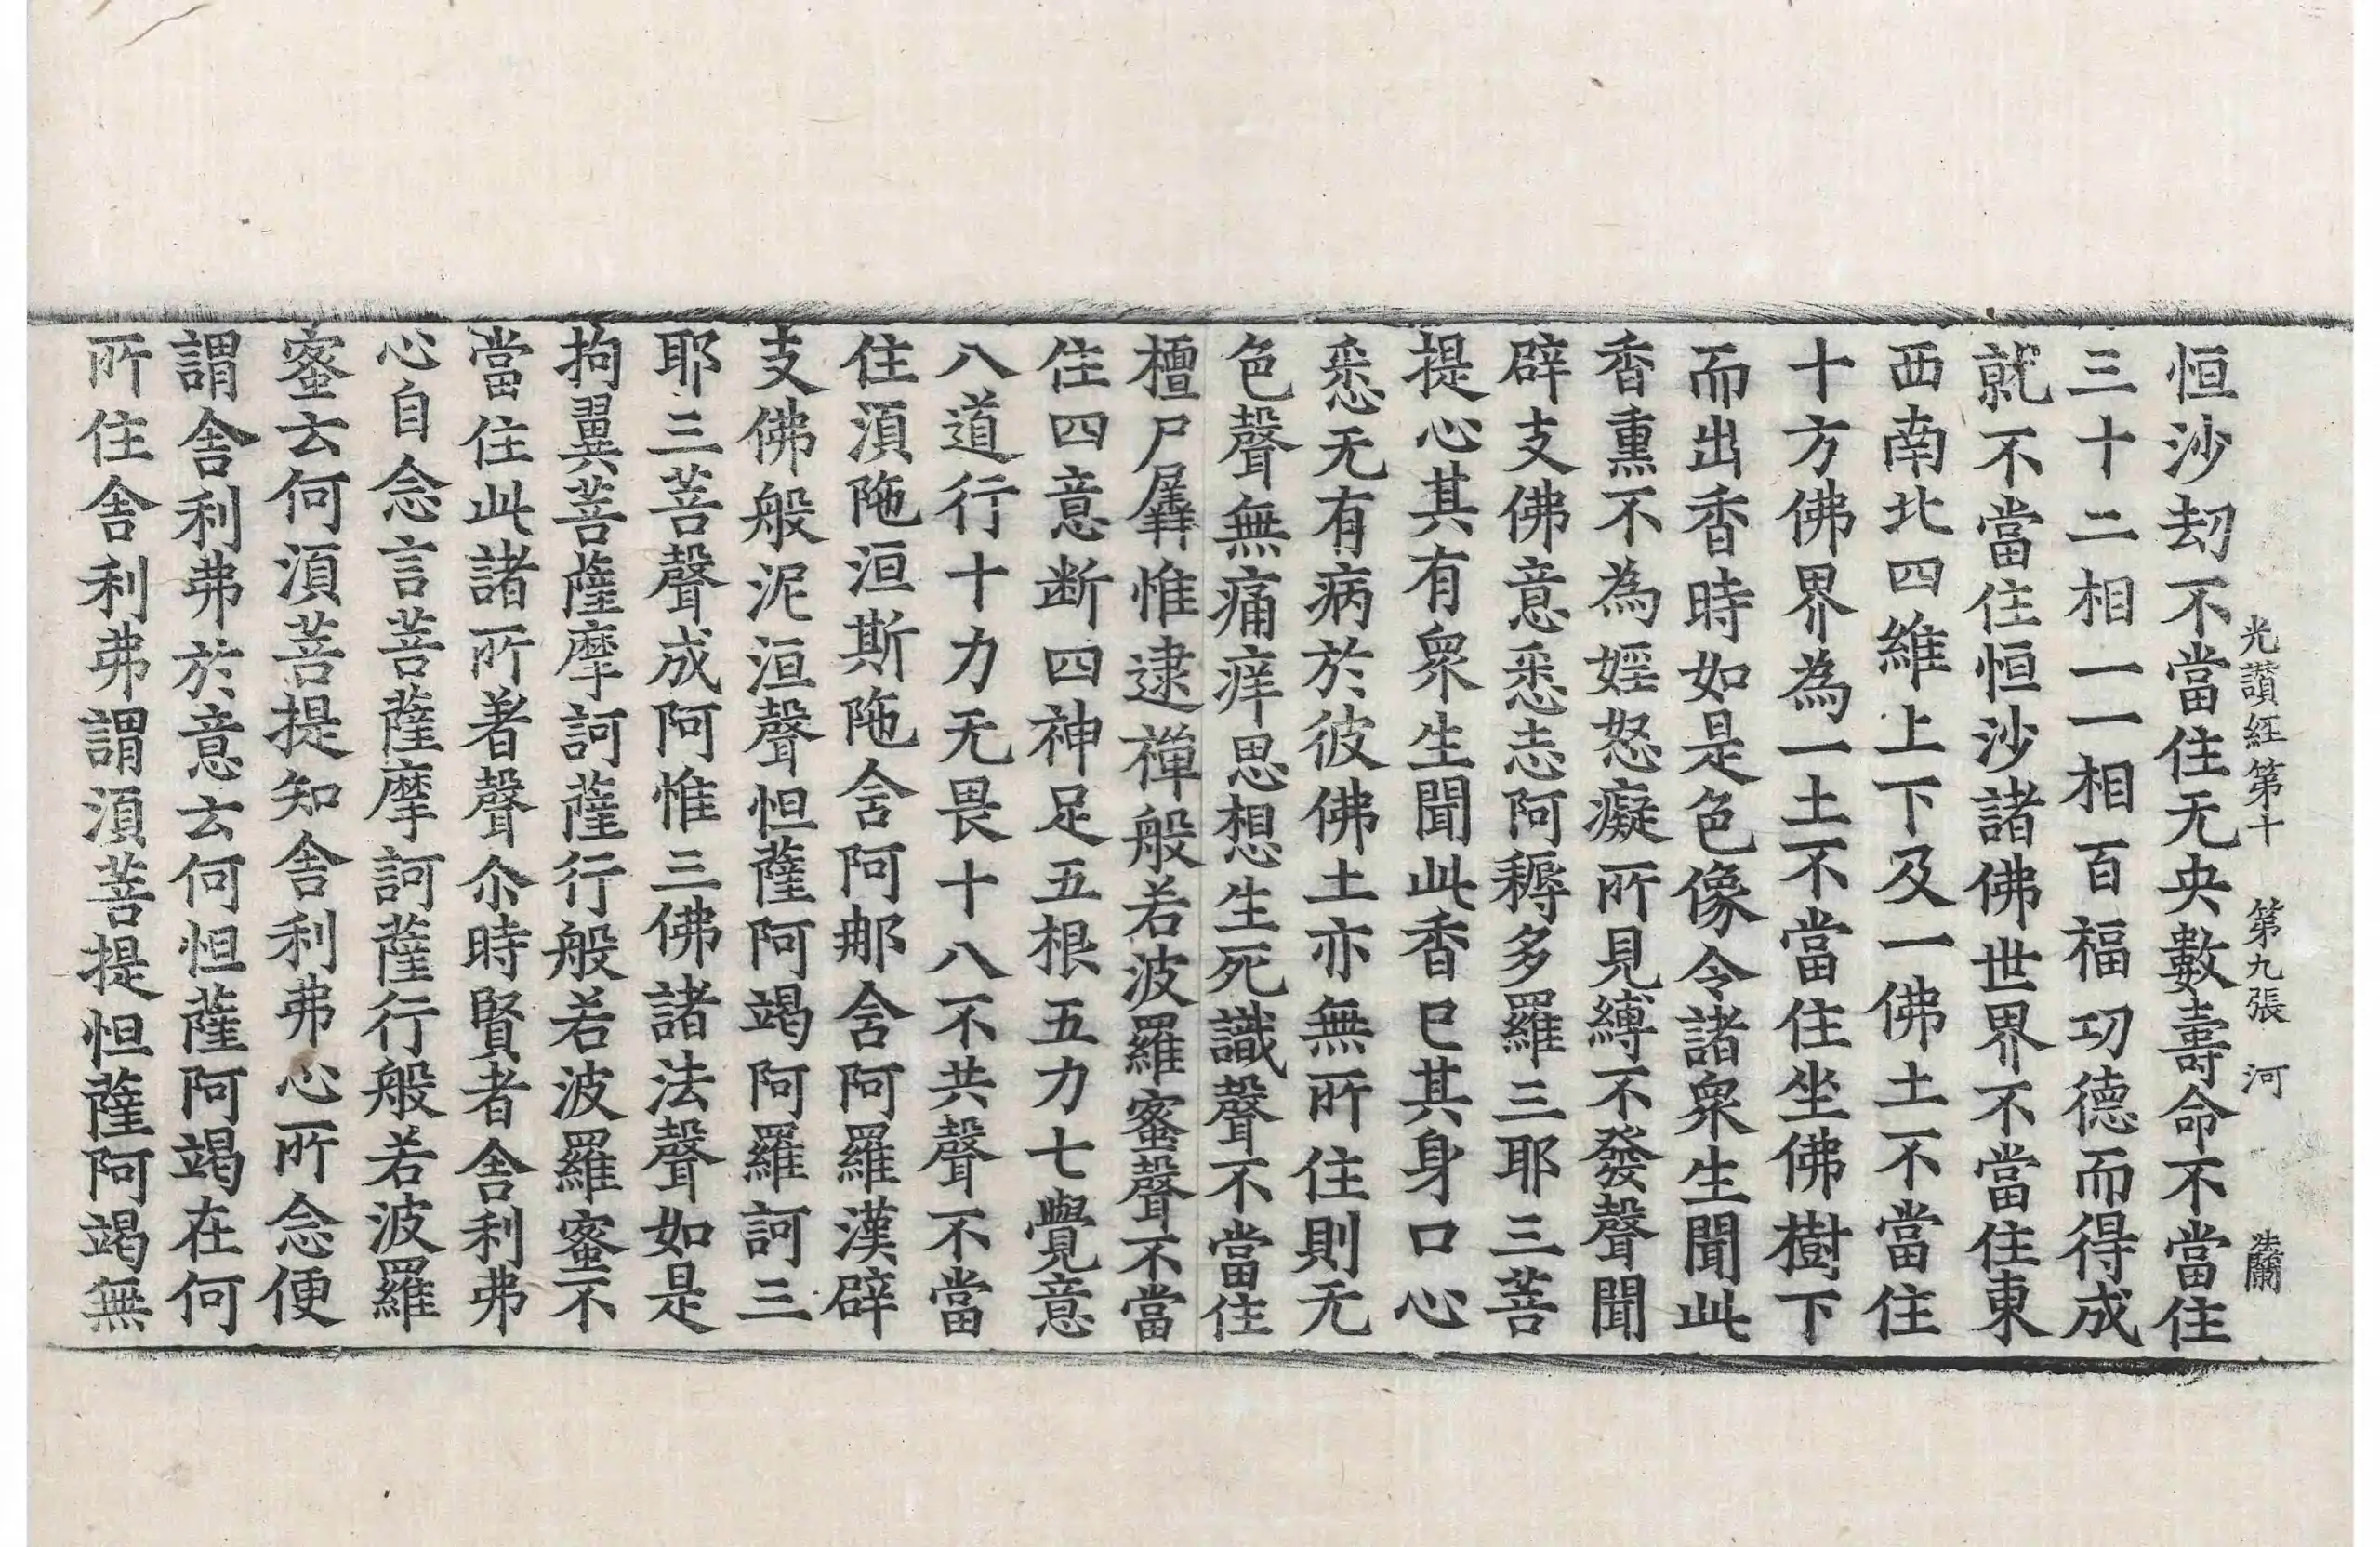 光讃經第十　第九張　河
恒沙劫不當住无央數壽命不當住
三十二相一一相百福功德而得成
就不當住恒沙諸佛世界不當住東
西南北四維上下及一佛土不當住
十方佛界為一土不當住坐佛樹下
而出香時如是色像令諸衆生聞此
香熏不為婬怒癡所見縛不發聲聞
辟支佛意悉志阿耨多羅三耶三菩
提心其有衆生聞此香已其身口心
悉无有病於彼佛土亦無所住則无
色聲無痛痒思想生死識聲不當住
檀尸羼惟逮禪般若波羅蜜聲不當
住四意断四神足五根五力七覺意
八道行十力无畏十八不共聲不當
住湏陁洹斯陁含阿那含阿羅漢辟
支佛般泥洹聲怛薩阿竭阿羅訶三
耶三菩聲成阿惟三佛諸法聲如是
拘翼菩薩摩訶薩行般若波羅蜜不
當住此諸所著聲尒時賢者舎利弗
心自念言菩薩摩訶薩行般若波羅
蜜云何湏菩提知舎利弗心所念便
謂舎利弗於意云何怛薩阿竭在何
所住舎利弗謂湏菩提怛薩阿竭無